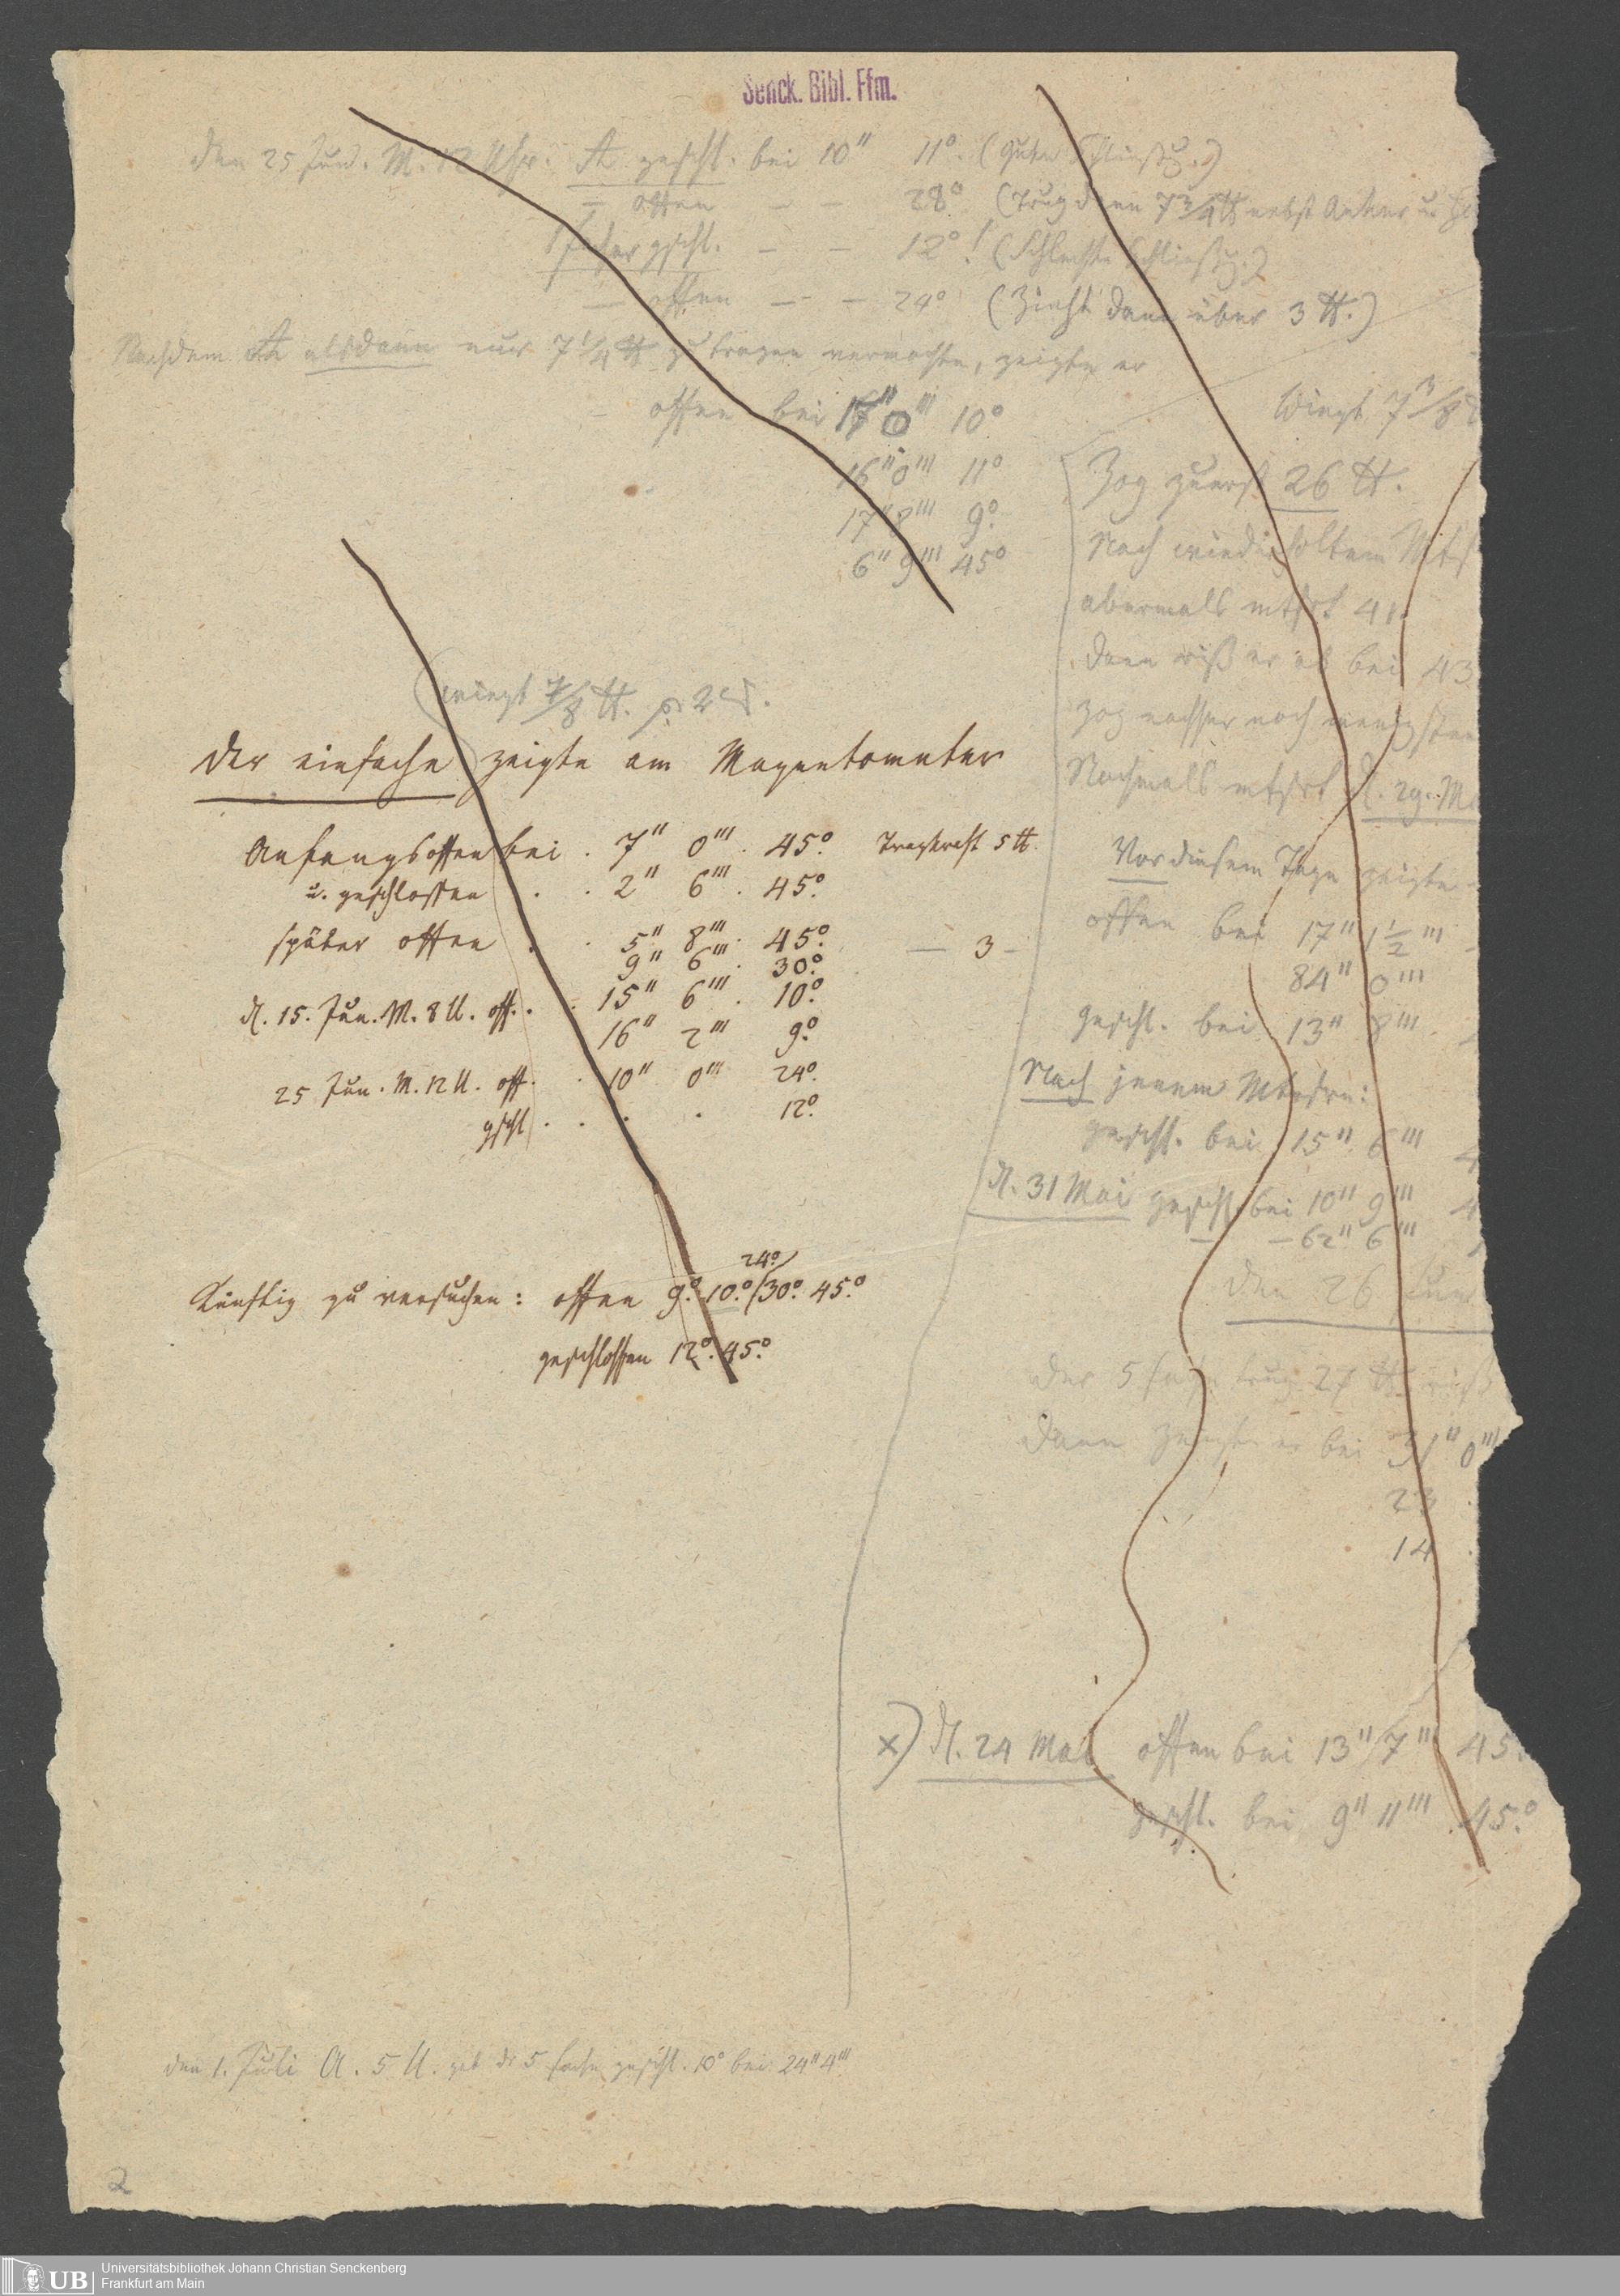 Senck. Bibl. Ffm.
den 25 Jun. M. 12 Uhr. A geschl. bei 10" 11°. (gute Schließg.)
— offen — — 28° (trug dann 7 3/4 ℔ nebst Anker u.
5facher gschl. — — 12°! (Schlechte Schließg.)
— offen — — 24° (Zieht dann über 3 ℔.)
Nachdem A alsdann nur 7 1/4 ℔ zu tragen vermochte, zeigte er
— offen bei 0''' 10°
16" 0''' 11°
17" 8''' 9°.
6" 9''' 45°
(wiegt 7/8 ℔.
Der einfache zeigte am Magnetometer
Anfangs offen bei . 7" 0''' . 45°. Tragkraft 5 ℔.
u. geschlossen . . 2" 6''' . 45°.
später offen . . 5" 8''' . 45°. — 3 —
9" 6''' . 30°.
d. 15. Jun. M. 8 U. off. . . 15" 6''' . 10°.
16" 2''' 9°.
25 Jun. M. 12 U. off. . 10" 0''' 24°.
gschl . . . . 12°.
24°.
Künftig zu versuchen: offen 9°. 10°./30°. 45°.
geschlossen 12°. 45°.
wiegt 7 3/8
Zog zuerst 26 ℔.
Nach wiederholtem
abermals 41.
dann riß er ab bei 43
zog nachher noch wenigstens
Nochmals d. 29. M
Vor diesem Tage zeigte
offen bei 17" 1 1/2'''
84" 0'''
geschl. bei 13" 8'''.
Nach jenem
geschl. bei 15" 6''' 4
d. 31 Mai geschl. bei 10" 9''' 4
— 62" 6'''
den 26 Jun
der 5fache trug 27 ℔ riß
dann zeigte er bei 31" 0'''
23
14
x) d. 24 Mai offen bei 13" 7''' 45°.
geschl. bei 9" 11''' 45°.
den 1. Juli A. 5 U. gab der 5fache geschl. 10° bei 24" 4'''
2
UB
Universitätsbibliothek Johann Christian Senckenberg
Frankfurt am Main